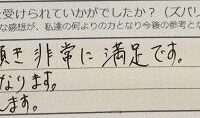 を受けられていかがでしたか？（ズバリ
な感想が、私達の何よりの力となり今後の参考とな
頂き 非常に 満足です。
なります。
します。